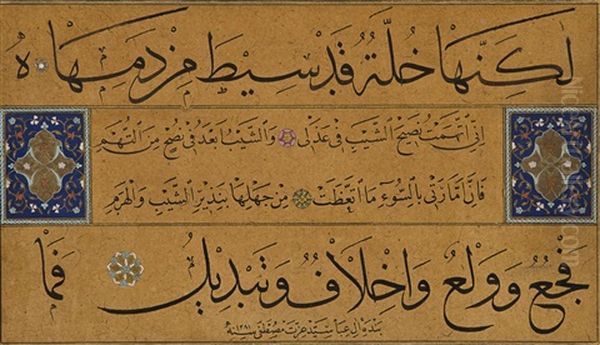 لَكِنَّهَا خُلَّةٌ قَدْ سِيطَ مِنْ دَمِهَا
اِنِّي اتَّهَمْتُ نَصِيحَ الشَّيْبِ فِي عَذَلِي وَالشَّيْبُ اَبْعَدُ فِي نُصْحٍ مِنَ التُّهَمِ
فَاِنَّ اَمَّارَتِي بِالسُّوءِ مَا اتَّعَظَتْ مِنْ جَهْلِهَا بِنَذِيرِ الشَّيْبِ وَالْهَرَمِ
فَجْعٌ وَوَلْعٌ وَاِخْلَافٌ وَتَبْدِيلُ فَمَا
بنده آل عبا سيد عزت مصطفى سنه ١٢٨١